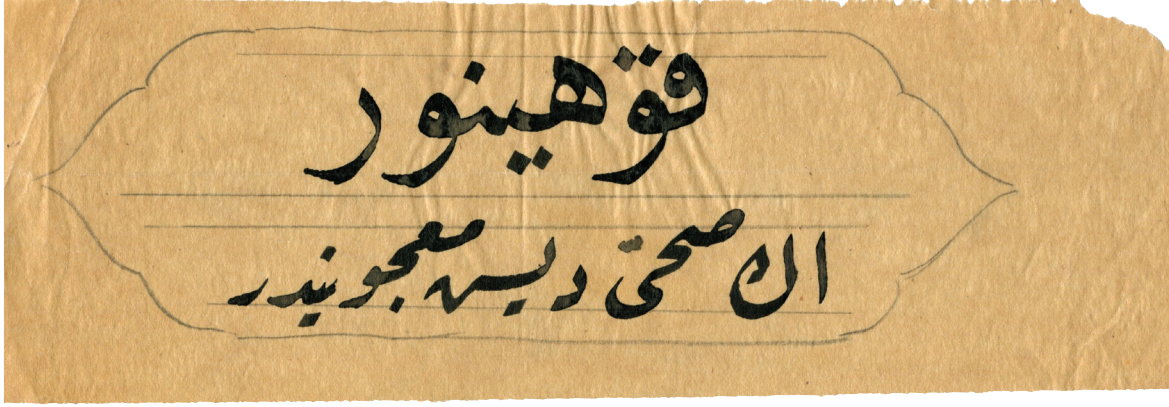 قوهينور
اك صحّى ديس معجونيدر